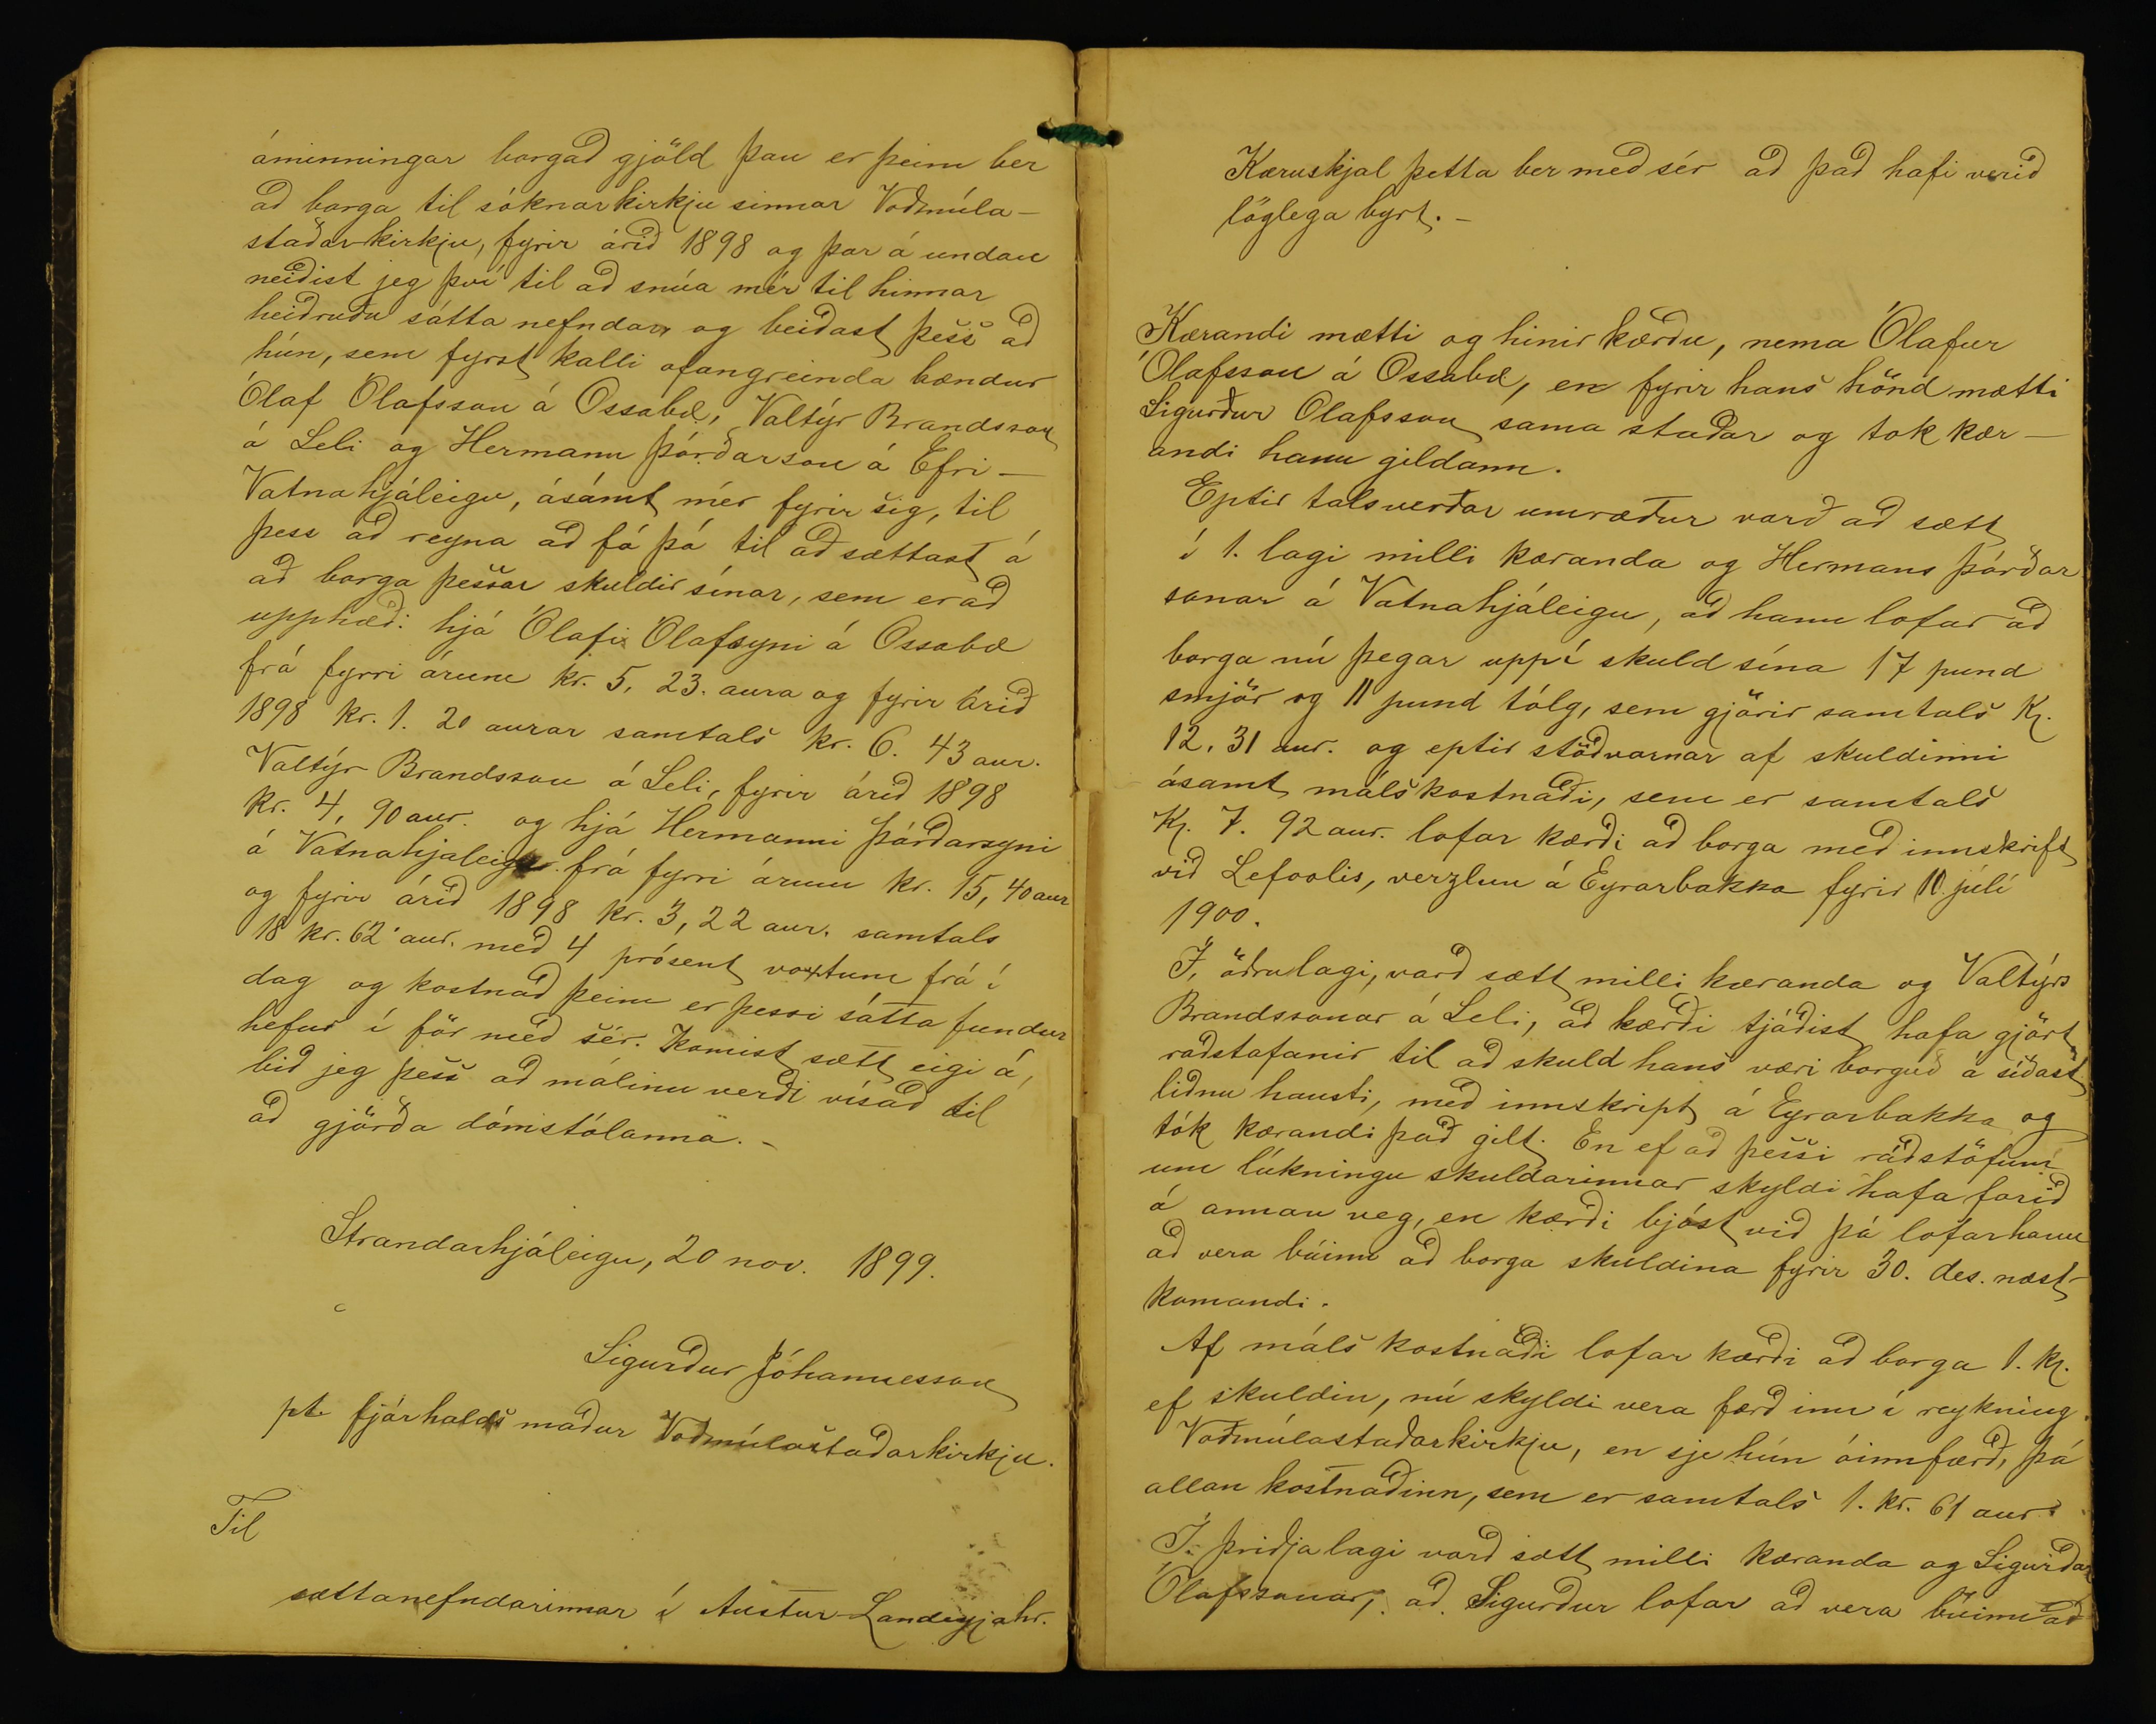 áminningar borgað gjöld þau er þeim ber
að borga til sóknarkirkju sinnar Voðmúla-
staðarkirkju, fyrir árið 1898 og þar á undan
neiðist jeg því til að snúa mér til hinnar
heiðruðu sáttanefndar og beiðast þess að
hún, sem fyrst kalli ofangreinda bændur
Ólaf Ólafsson á Ossabæ, Valtýr Brandsson
á Seli og Hermann Þórðarson á Efri-
Vatnahjáleigu, ásámt mér fyrir sig, til
þess að reyna að fá þá til að sættast á
að borga þessar skuldir sínar, sem er að
upphæð: hjá Ólafi Ólafsyni á Ossabæ
frá fyrri árum kr. 5, 23. aura og fyrir árið
1898 kr. 1. 20 aurar samtals kr. 6. 43 aur.
Valtýr Brandsson á Seli, fyrir árið 1898
kr. 4, 90 aur. og hjá Hermanni Þórðarsyni
á Vatnahjaleigu. frá fyrri árum kr. 15, 40 aur
og fyrir árið 1898 kr. 3, 22 aur. samtals
18 kr. 62 aur. með 4 prósent vöxtum frá í
dag og kostnað þeim er þessi sátta fundur
hefur í för með sér. Komist sætt eigi á,
bið jeg þess að málinu verði vísað til
að gjörða dómstólanna. -
Strandarhjáleigu, 20 nov. 1899.
Sigurður Jóhannesson
pt. fjárhaldsmaður Voðmúlastaðarkirkju.
Til
sættanefndarinnar í Austur-Landeyjahr.
Kæruskjal þetta ber með sér að það hafi verið
löglega byrt. -
Kærandi mætti og hinir kærðu, nema Ólafur
Ólafsson á Ossabæ, en fyrir hans hönd mætti
Sigurður Olafsson sama staðar og tok kær-
andi hann gildann.
Eptir talsverðar umræður varð að sætt
í 1. lagi milli kæranda og Hermans Þórðar
sonar á Vatnahjáleigu, að hann lofar að
borga nú þegar uppí skuld sína 17 pund
smjör og 11 pund tólg, sem gjörir samtals Kr.
12, 31 aur. og eptir stöðvarnar af skuldinni
ásamt málskostnaði, sem er samtals
Kr. 7. 92 aur. lofar kærði að borga með innskrift
við Lefoolis, verzlun á Eyrarbakka fyrir 10. júlí
1900.
Í, öðrulagi, varð sætt milli kæranda og Valtýrs
Brandssonar á Seli, að kærði tjáðist hafa gjört
raðstafanir til að skuld hans væri borguð á síðast
liðnu hausti, með innskript á Eyrarbakka og
tók kærandi það gilt. En ef að þessi ráðstöfun
um lúkningu skuldarinnar skyldi hafa farið
á annan veg, en kærði bjóst við þá lofar hann
að vera búinn að borga skuldina fyrir 30. des. næst-
komandi.
Af máls kostnaði lofar kærði að borga 1. kr.
ef skuldin, nú skyldi vera færð inn í reykning
Voðmúlastaðarkirkju, en sje hún óinnfærð, þá
allan kostnaðinn, sem er samtals 1. kr. 61 aur.
Í þriðja lagi varð sætt milli kæranda og Sigurðar
Ólafssonar, að Sigurður lofar að vera búinn að